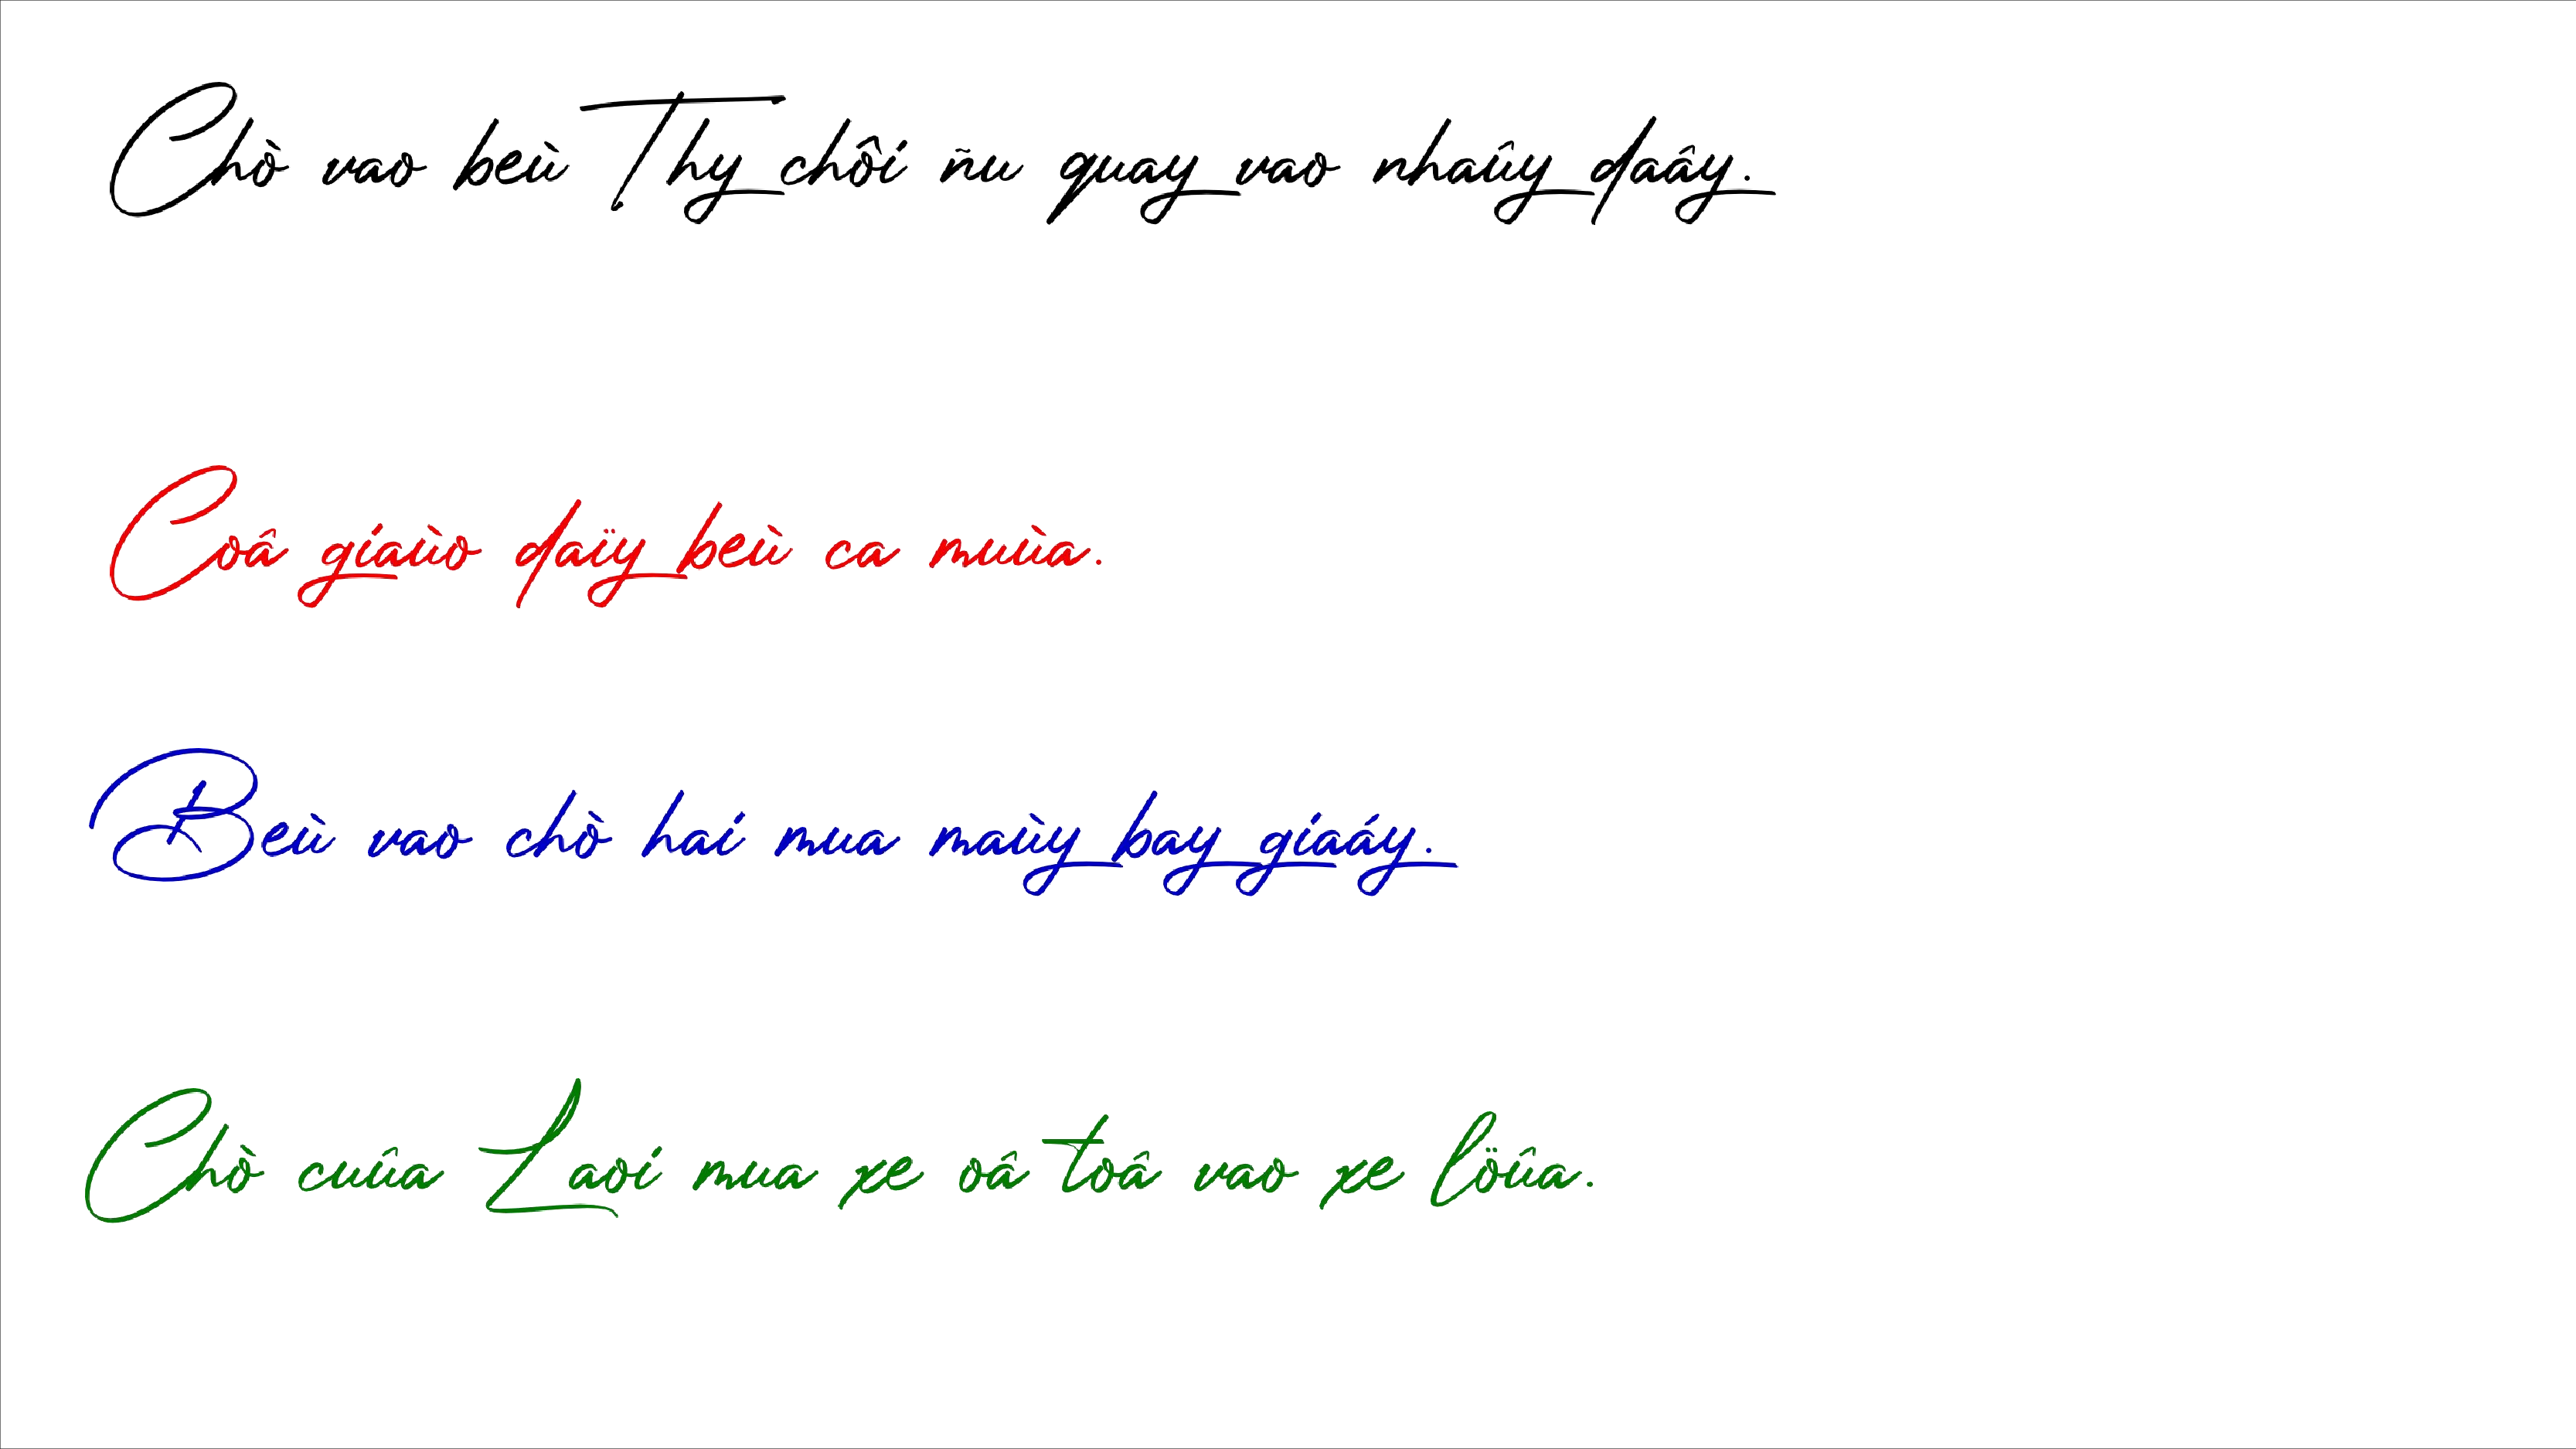 Chò vao beù Thy chôi ñu quay vao nhaûy daây.
Coâ giaùo daïy beù ca muùa.
Beù vao chò hai mua maùy bay giaáy.
Chò cuûa Laoi mua xe oâ toâ vao xe löûa.